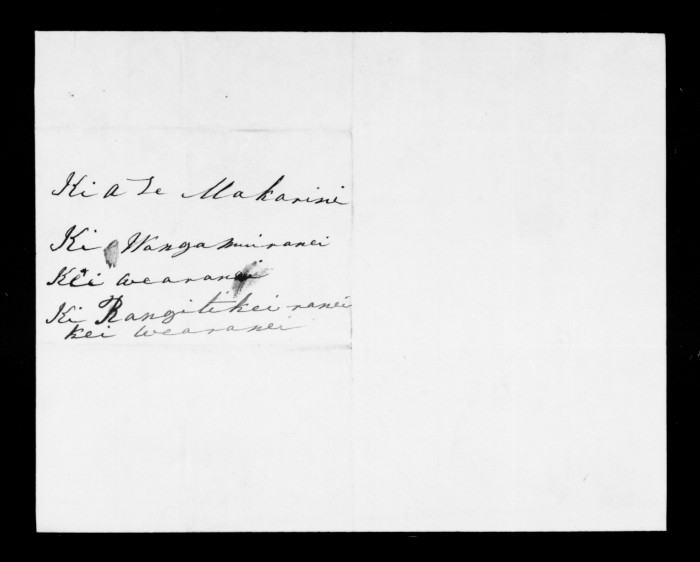 Ki a Te Makarini
Ki Wanganuiranei
Kei wearanei
Ki Rangitikei ranei
kei wearanei